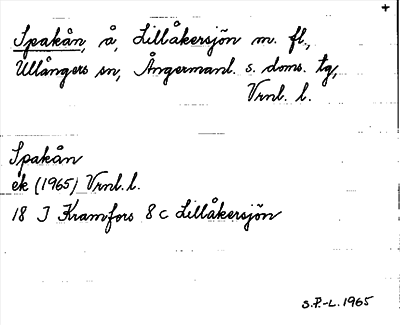 +
Spakån, å, Lillåkersjön m. fl.,
Ullångers sn, Ångermanl. s. doms. tg,
Vrnl. l.
Spakån
ek (1965) Vrnl. l.
18 J Kramfors 8 c Lillåkersjön
S.P.-L. 1965